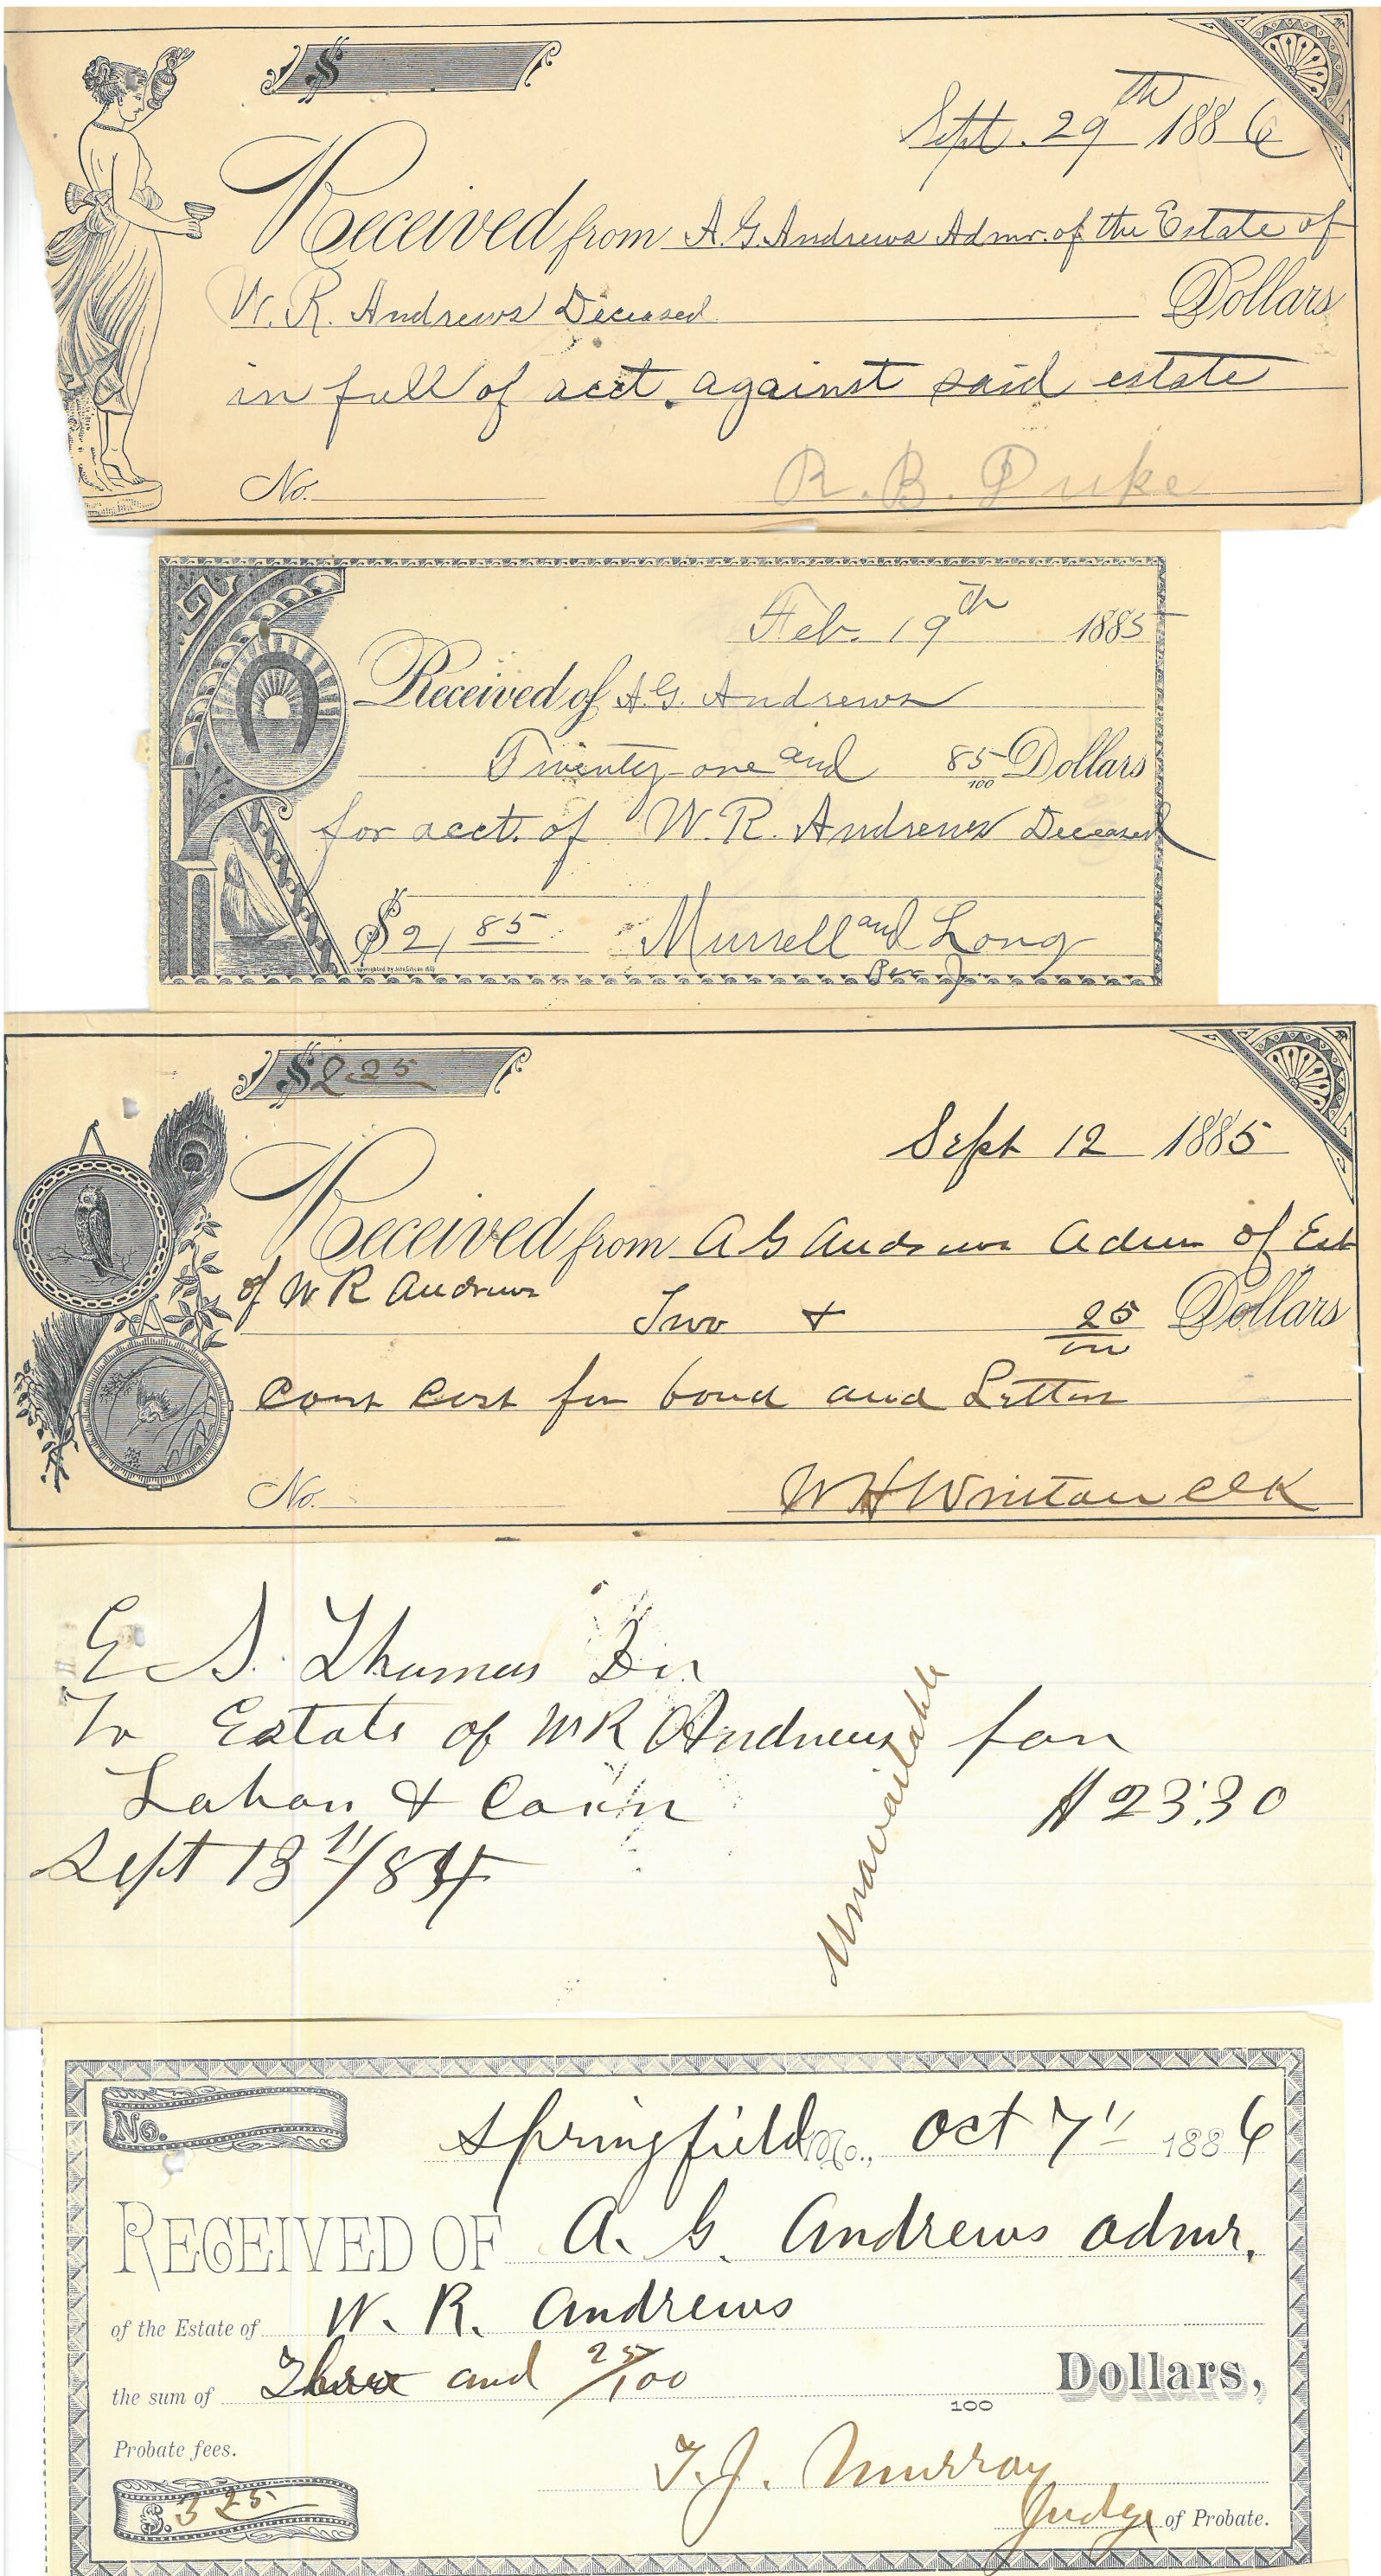 $
Sept. 29th 1886
Received from A. G. Andrews Admr. of the Estate of
W. R. Andrews Deceased Dollars
in full of acct. against said estate
No. R. B. Duke
Feb. 19th 1885
Received of A. G. Andrews
Twenty-one and 85/100 Dollars
for acct. of W. R. Andrews Deceased
$21 85 Murrell and Long
Per J.
$2.25
Sept 12 1885
Received from A G Andrews Admr of Est
of W R Andrews Two & 25/100 Dollars
Court Cost for bond and Letters
No. W H Winton Clk
E S. Thomas Dr
To Estate of W R Andrews for
Labor & Corn $23.30
Sept 13 11/84
Unavailable
No.
Springfield Mo., Oct 7" 1886
RECEIVED OF A. G. Andrews admr.
of the Estate of W. R. Andrews
the sum of Three and 25/100 100 Dollars,
Probate fees. T. J. Murray
$. 3 25 Judge of Probate.